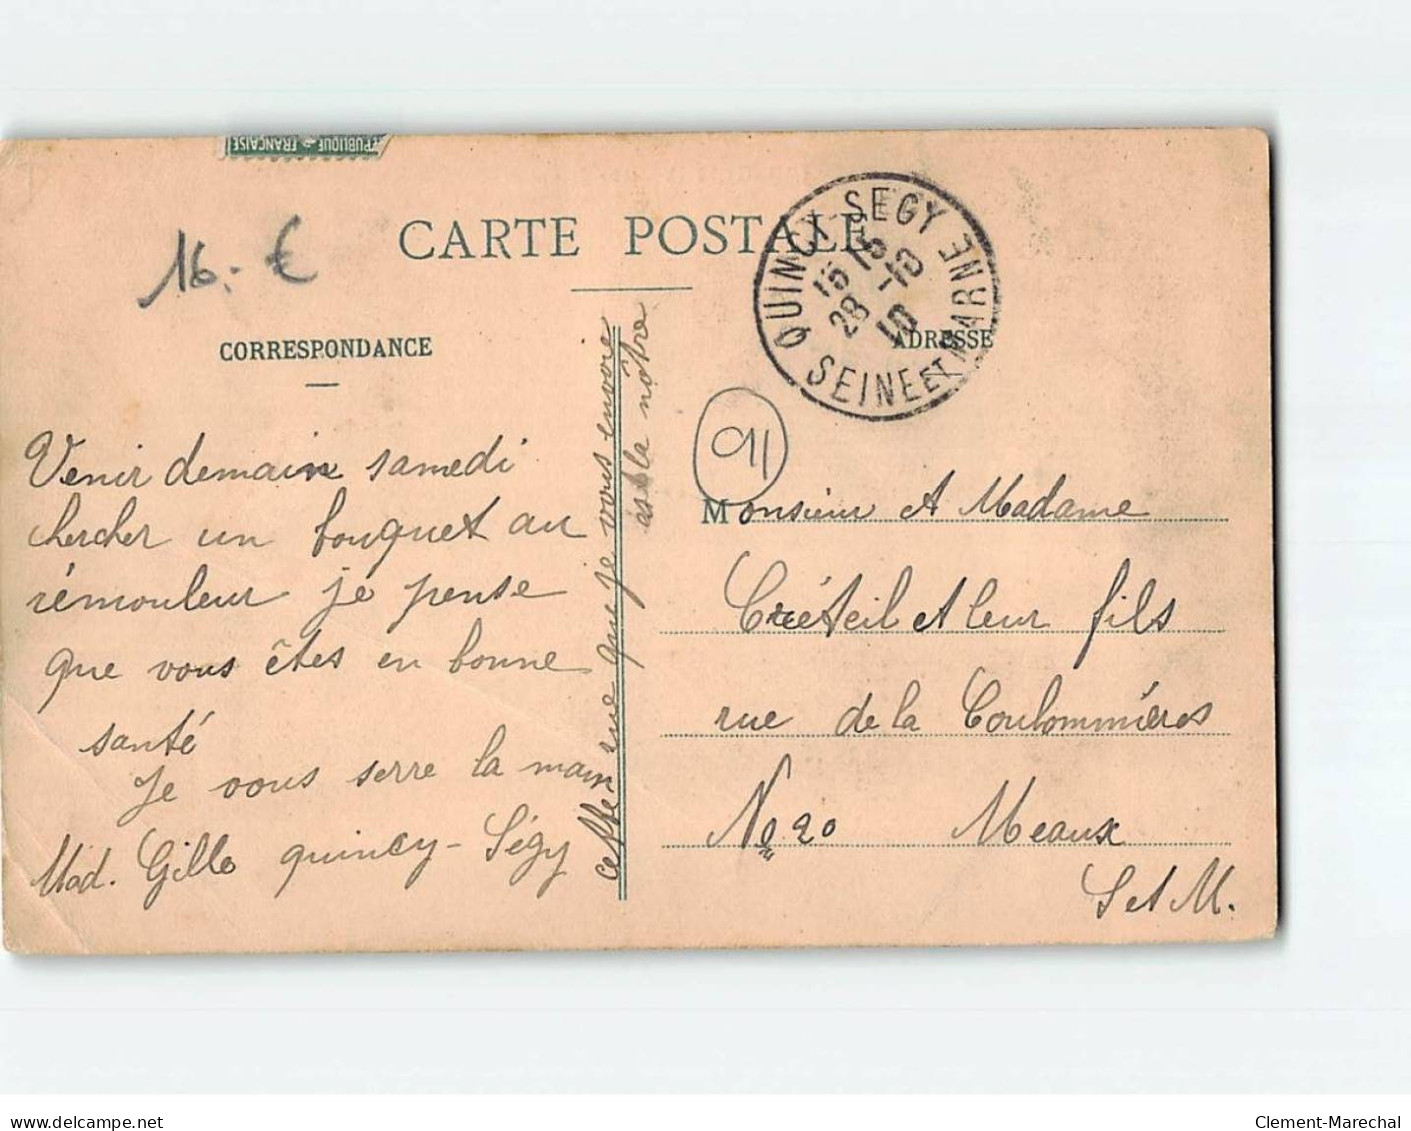 RÉPUBLIQUE FRANÇAISE
16.- €
CARTE POSTALE
QUINCY-SEGY
15 15
28 -10
10
SEINE ET MARNE
CORRESPONDANCE
ADRESSE
Venir demain samedi
chercher un bouquet au
rémouleur je pense
que vous êtes en bonne
santé
Je vous serre la main
Mad. Gille quincy-Ségy
cette vue que je vous envoie
est la nôtre
Monsieur et Madame
Créteil et leur fils
rue de la Coulommiéres
No 20 Meaux
S et M.
delcampe.net
Clement-Marechal